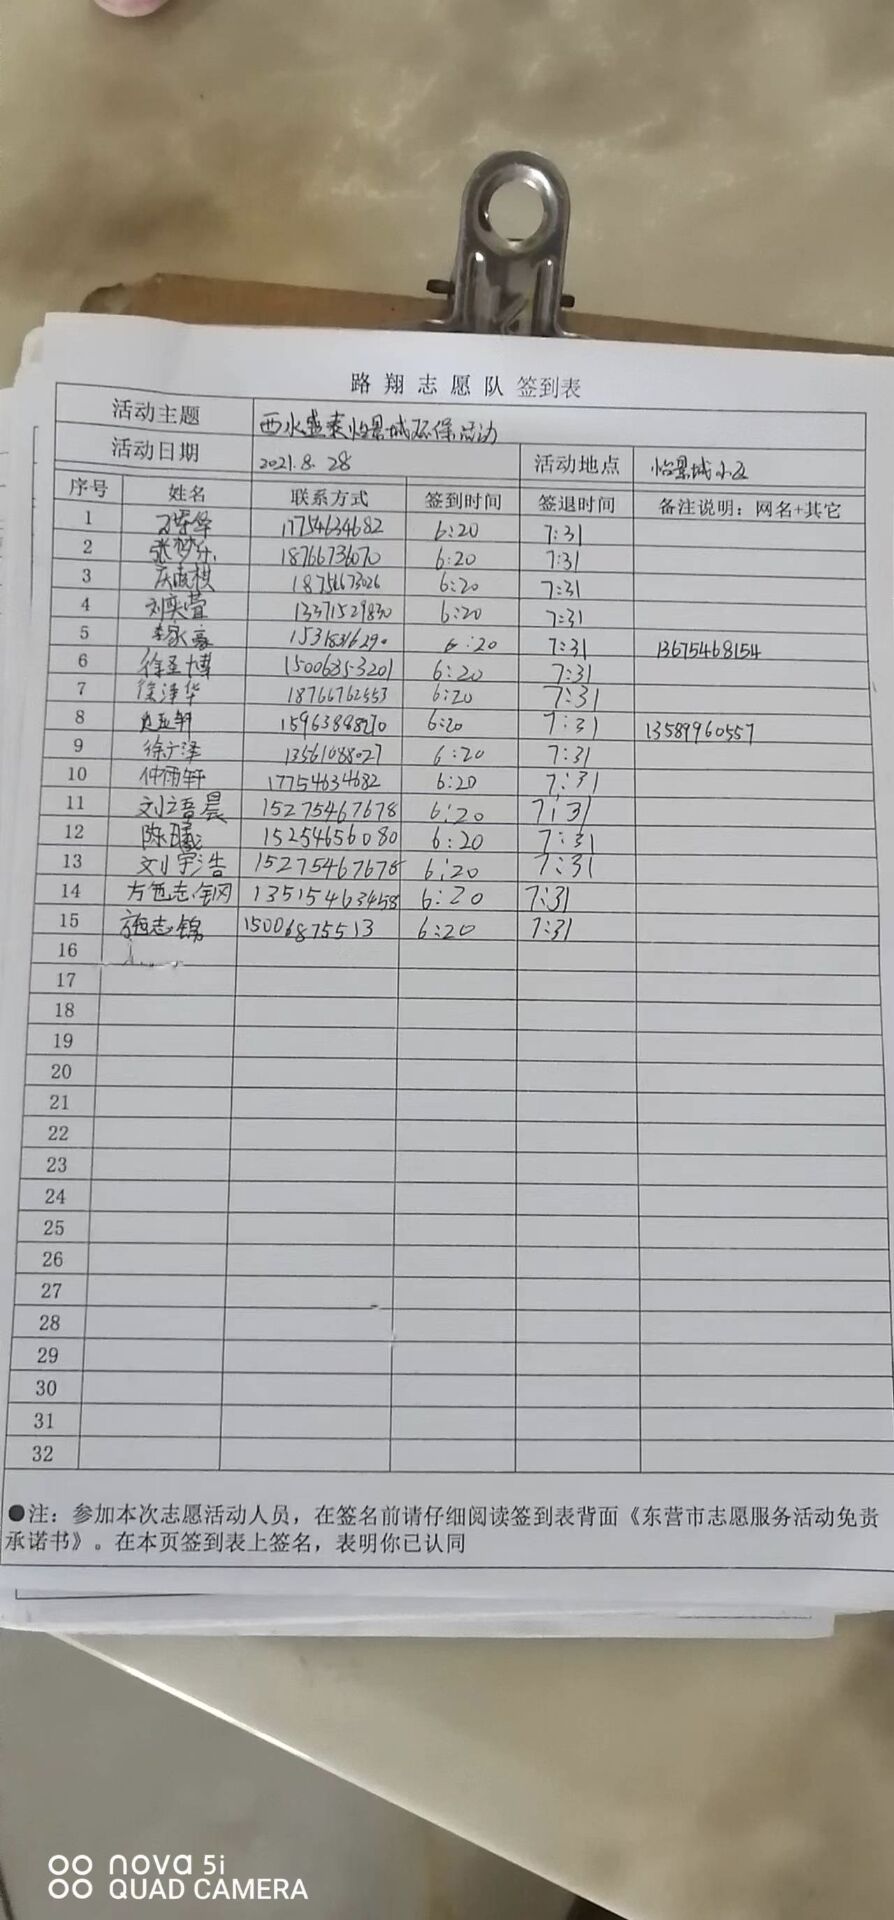 路翔志愿队 签到表
活动主题 西水盛泰怡景城环保活动
活动日期 2021.8.28 活动地点 怡景城小区
序号 姓名 联系方式 签到时间 签退时间 备注说明：网名+其它
1 17754634682 6:20 7:31
2 张梦乐 18766736070 6:20 7:31
3 18756673026 6:20 7:31
4 刘奕萱 13371529830 6:20 7:31
5 李家豪 15318316290 6:20 7:31 13675468154
6 徐圣博 15006353201 6:20 7:31
7 徐泽华 18766762553 6:20 7:31
8 15963888270 6:20 7:31 13589960557
9 徐广泽 13561088027 6:20 7:31
10 仲雨轩 17754634682 6:20 7:31
11 刘语晨 15275467678 6:20 7:31
12 陈曦 15254656080 6:20 7:31
13 刘宇浩 15275467678 6:20 7:31
14 施志钢 13515463458 6:20 7:31
15 施志锦 15006875513 6:20 7:31
16
17
18
19
20
21
22
23
24
25
26
27
28
29
30
31
32
●注：参加本次志愿活动人员，在签名前请仔细阅读签到表背面《东营市志愿服务活动免责
承诺书》。在本页签到表上签名，表明你已认同
nova 5i
QUAD CAMERA